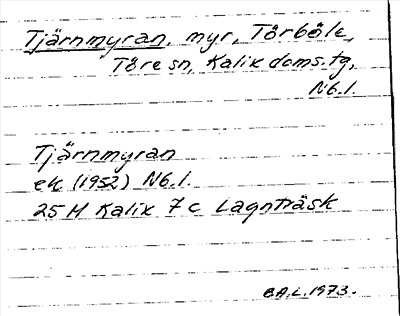 Tjärnmyran, myr, Törböle,
Töre sn, Kalix doms.tg,
Nb.l.
Tjärnmyran
ek (1952) Nb.l.
25 H Kalix 7 c Lagnträsk
B.A.L. 1973.